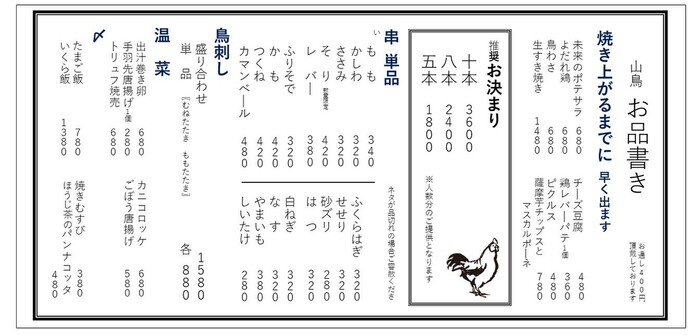 山鳥 お品書き
お通し400円
頂戴しております
焼き上がるまでに 早く出ます
未来のポテサラ 680
よだれ鶏 680
鳥わさ 680
生すき焼き 1480
チーズ豆腐 480
鶏レバーパテ1個 360
ピクルス 480
薩摩芋チップスと
マスカルポーネ 780
推奨 お決まり
十本 3600
八本 2400
五本 1800
※人数分のご提供となります
串 単品
ネタが品切れの場合ご容赦くださ
い
もも 340
かしわ 320
ささみ 320
そり 数量限定 420
レバー 380
ふりそで 320
かも 420
つくね 420
カマンベール 480
ふくらはぎ 320
せせり 320
砂ズリ 280
はつ 320
白ねぎ 320
なす 320
やまいも 380
しいたけ 280
鳥刺し
盛り合わせ 1580
単品 『むねたたき ももたたき』 各 880
温菜
出汁巻き卵 680
手羽先唐揚げ1個 280
トリュフ焼売 680
カニコロッケ 680
ごぼう唐揚げ 580
〆
たまご飯 780
いくら飯 1380
焼きむすび 380
ほうじ茶のパンナコッタ 480